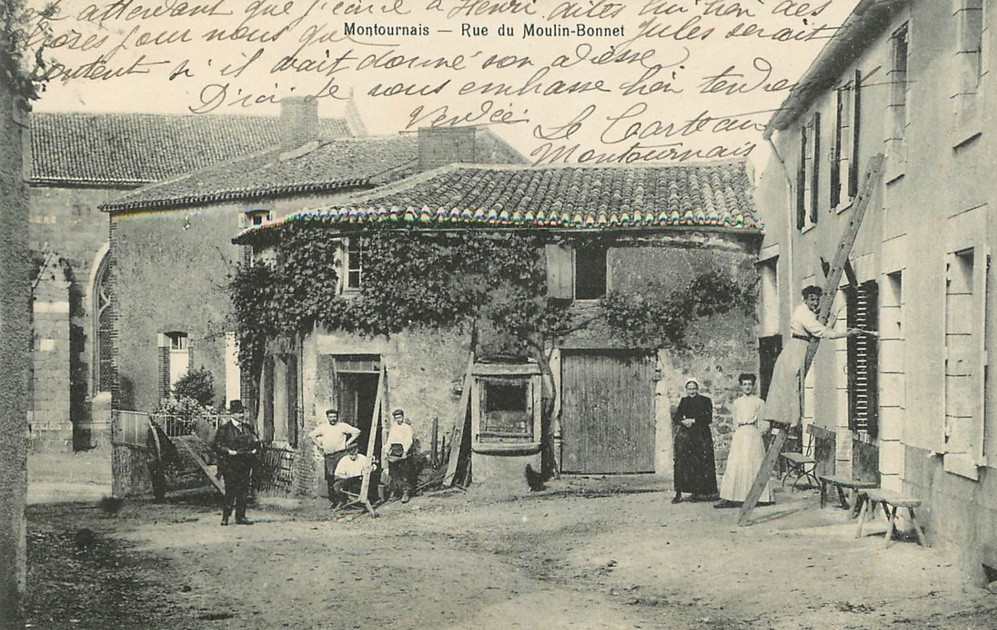 attendant que j'écrive à Henri dites lui bien des
choses pour nous que Jules serait
content si il avait donné son adresse
Montournais — Rue du Moulin-Bonnet
D'ici je vous embrasse bien tendre
Vendée. Le
Montournais